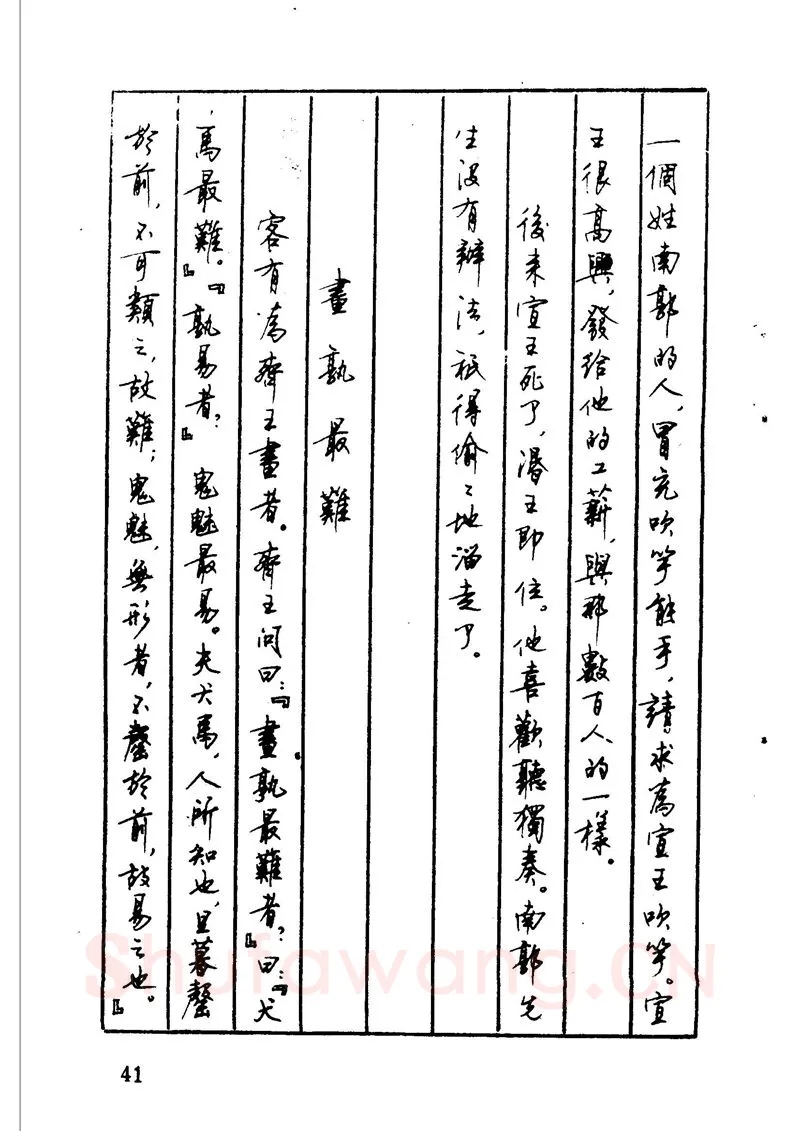 一個姓南郭的人，冒充吹竽能手，請求為宣王吹竽。宣
王很高興，發給他的工薪，與那數百人的一樣。
後来宣王死了，湣王即位。他喜歡聽獨奏。南郭先
生沒有辦法，祇得偷〻地溜走了。
畫孰最難
客有為齊王畫者。齊王問曰：『畫孰最難者？』曰：『犬
馬最難。』『孰易者？』鬼魅最易。夫犬馬，人所知也，旦暮罄
於前，不可類之，故難；鬼魅，無形者，不罄於前，故易之也。』
Shufawang.CN
41